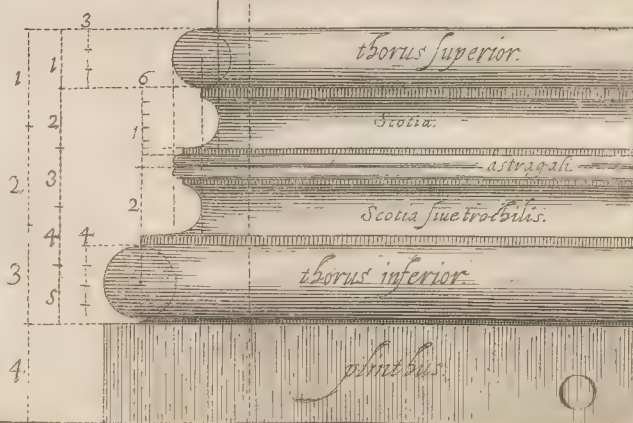 3
thorus superior.
1
1
6
Scotia.
2
1
astragali.
2
3
2
Scotia siue trochilis.
4
4
thorus inferior.
3
5
plinthus.
4